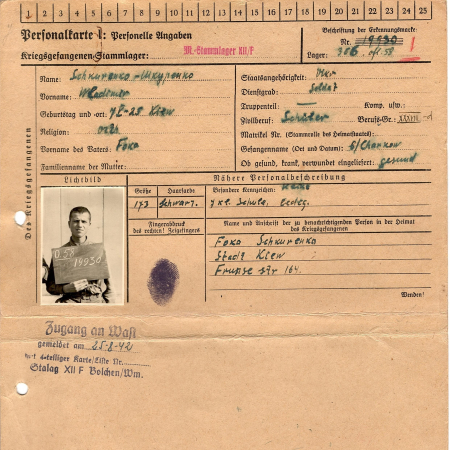 1 2 3 4 5 6 7 8 9 10 11 12 13 14 15 16 17 18 19 20 21 22 23 24 25
Personalkarte I: Personelle Angaben
Kriegsgefangenen-Stammlager:
M.-Stammlager XII/F
Beschriftung der Erkennungsmarke
Nr. 19930
Lager:
Des Kriegsgefangenen
Name: Schkurenko-Шкуренко
Vorname: Wladimir
Geburtstag und -ort: Kiew
Religion:
Vorname des Vaters: Foka
Familienname der Mutter:
Staatsangehörigkeit: Ukr
Dienstgrad: Soldat
Truppenteil: — Komp. usw.:
Zivilberuf: Schüler Berufs-Gr.:
Matrikel Nr. (Stammrolle des Heimatstaates):
Gefangennahme (Ort und Datum): Charkow
Ob gesund, krank, verwundet eingeliefert: gesund
Lichtbild
Nähere Personalbeschreibung
Größe Haarfarbe Besondere Kennzeichen: keine
173 Schwarz.
Fingerabdruck
des rechten! Zeigefingers
Name und Anschrift der zu benachrichtigenden Person in der Heimat
des Kriegsgefangenen
Foka Schkurenko
Stadt Kiew
Frunse str 164.
Wenden!
19930
Zugang an Wast
gemeldet am 25-8-42
Karte/Liste Nr.
Stalag XII F Bolchen/Wm.